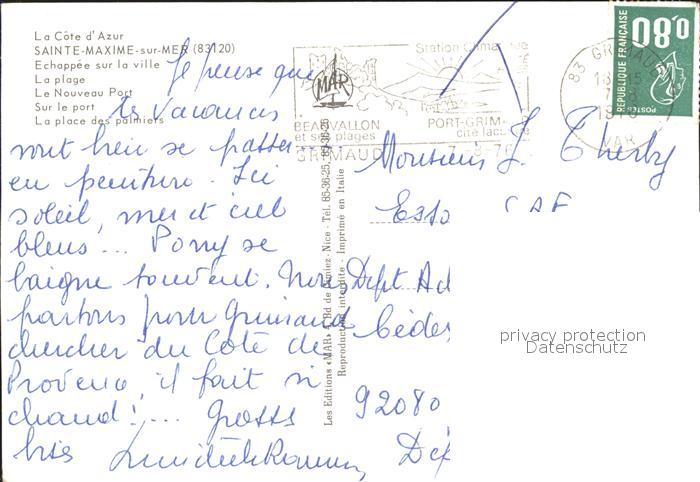 La Côte d'Azur
SAINTE-MAXIME-sur-MER (83120)
Echappée sur la ville
La plage
Le Nouveau Port
Sur le port
La place des palmiers
Je pense que
tes vacances
vont bien se passer
en peinture. Ici
soleil, mer et ciel
bleus... Pomy se
baigne souvent. Nous
partons pour Grimaud
chercher du Côte de
Provence, il fait si
chaud!... Grosses
bises
Les Editions «MAR» Bd de - Nice - Tél. 85-36-25, 85-36-26
Reproduction interdite - Imprimé en Italie
MAR
Station Climatique
BEAUVALLON
et ses plages
PORT-GRIMAUD
cité lacustre
GRIMAUD
7-8-76
83 GRIMAUD
VAR
0.80
REPUBLIQUE FRANÇAISE
POSTES
Monsieur J.
Esso CAF
Dept Ad
92080
privacy protection
Datenschutz